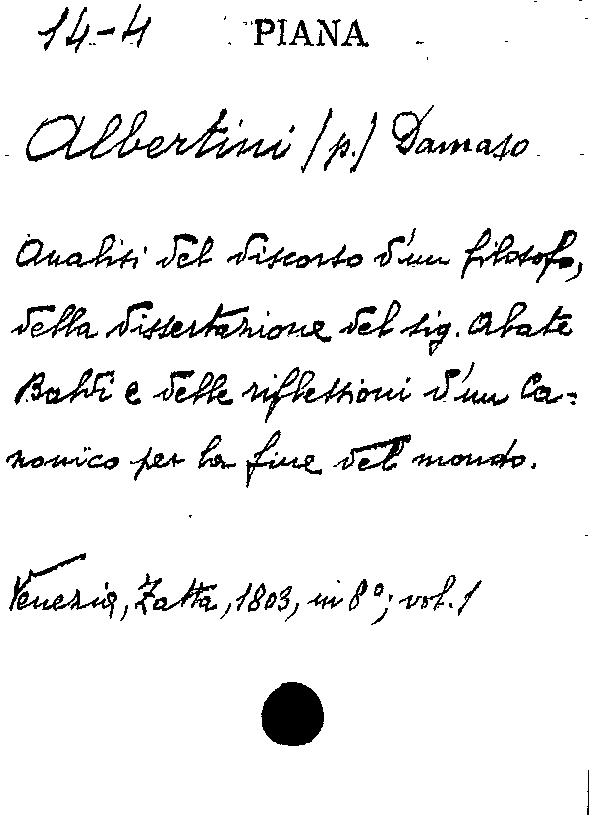 14-4 PIANA
Albertini (p.) Damaso
Analisi del discorso d'un filosofo,
della dissertazione del sig. Abate
Baldi e delle riflessioni d'un Ca=
nonico per la fine del mondo.
Venezia, Zatta, 1803, in 8º; vol. 1